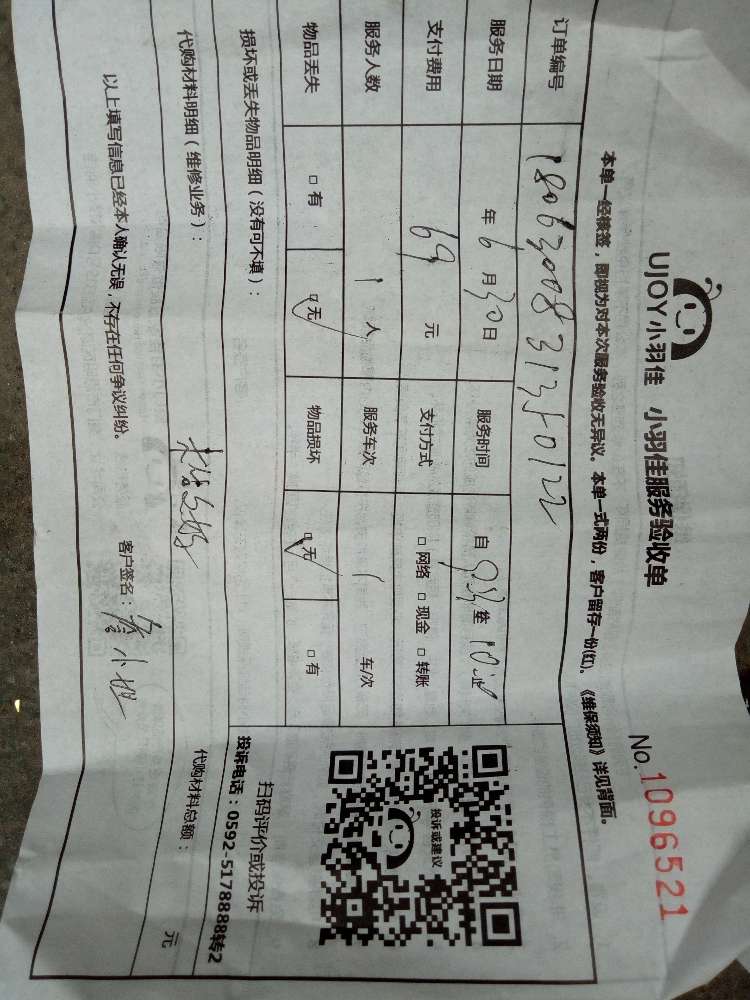 UJOY小羽佳 小羽佳服务验收单
No.1096521
本单一经核签，即视为对本次服务验收无异议。本单一式两份，客户留存一份(红)。《维保须知》详见背面。
订单编号
服务日期 年 6 月 30 日 服务时间 自
支付费用 69 元 支付方式 □网络 □现金 □转账
服务人数 1 人 服务车次 1 车/次
物品丢失 □有 □无 物品损坏 □无 □有
投诉或建议
扫码评价或投诉
投诉电话：0592-5178888转2
损坏或丢失物品明细（没有可不填）：
代购材料明细（维修业务）： 代购材料总额： 元
以上填写信息已经本人确认无误，不存在任何争议纠纷。 客户签名：